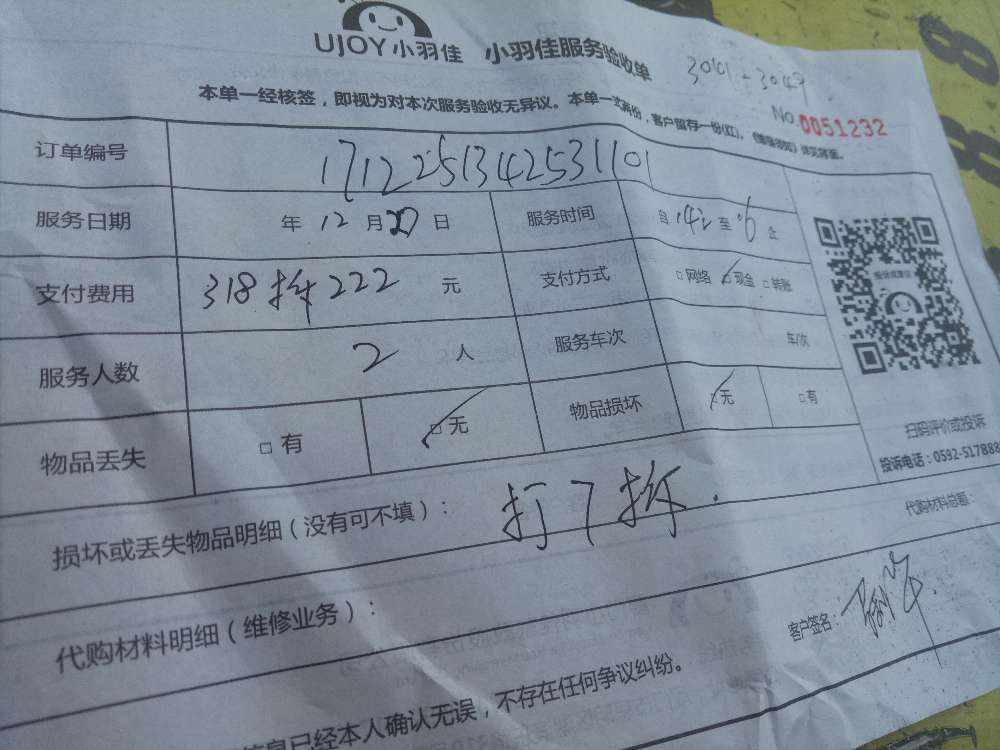 UJOY小羽佳 小羽佳服务验收单 3041-3049
本单一经核签，即视为对本次服务验收无异议。本单一式两份，客户留存一份(红)，
No.0051232
订单编号 17122513425331101
服务日期 年 12 月 27 日 服务时间 自 至
支付费用 318折222 元 支付方式 □网络 □现金 □转账
服务人数 2 人 服务车次 车/次
物品丢失 □有 □无 物品损坏 □无 □有
扫码评价或投诉
投诉电话：0592-517888
损坏或丢失物品明细（没有可不填）： 打7折.
代购材料总额：
代购材料明细（维修业务）：
客户签名：
信息已经本人确认无误，不存在任何争议纠纷。